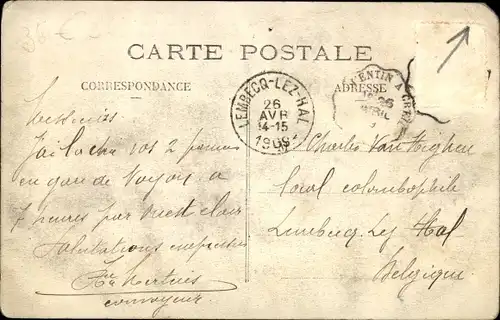 35 €
CARTE POSTALE
CORRESPONDANCE
ADRESSE
LEMBECQ-LEZ-HAL
26
AVR
14-15
1909
ENTIN A
26
AVRIL
Messieurs
J'ai lâché vos 2 paniers
en gare de Noyon à
7 heures par ouest clair
Salutations empressées
convoyeur
Mr Charles Van
colombophile
Lembecq Lez Hal
Belgique